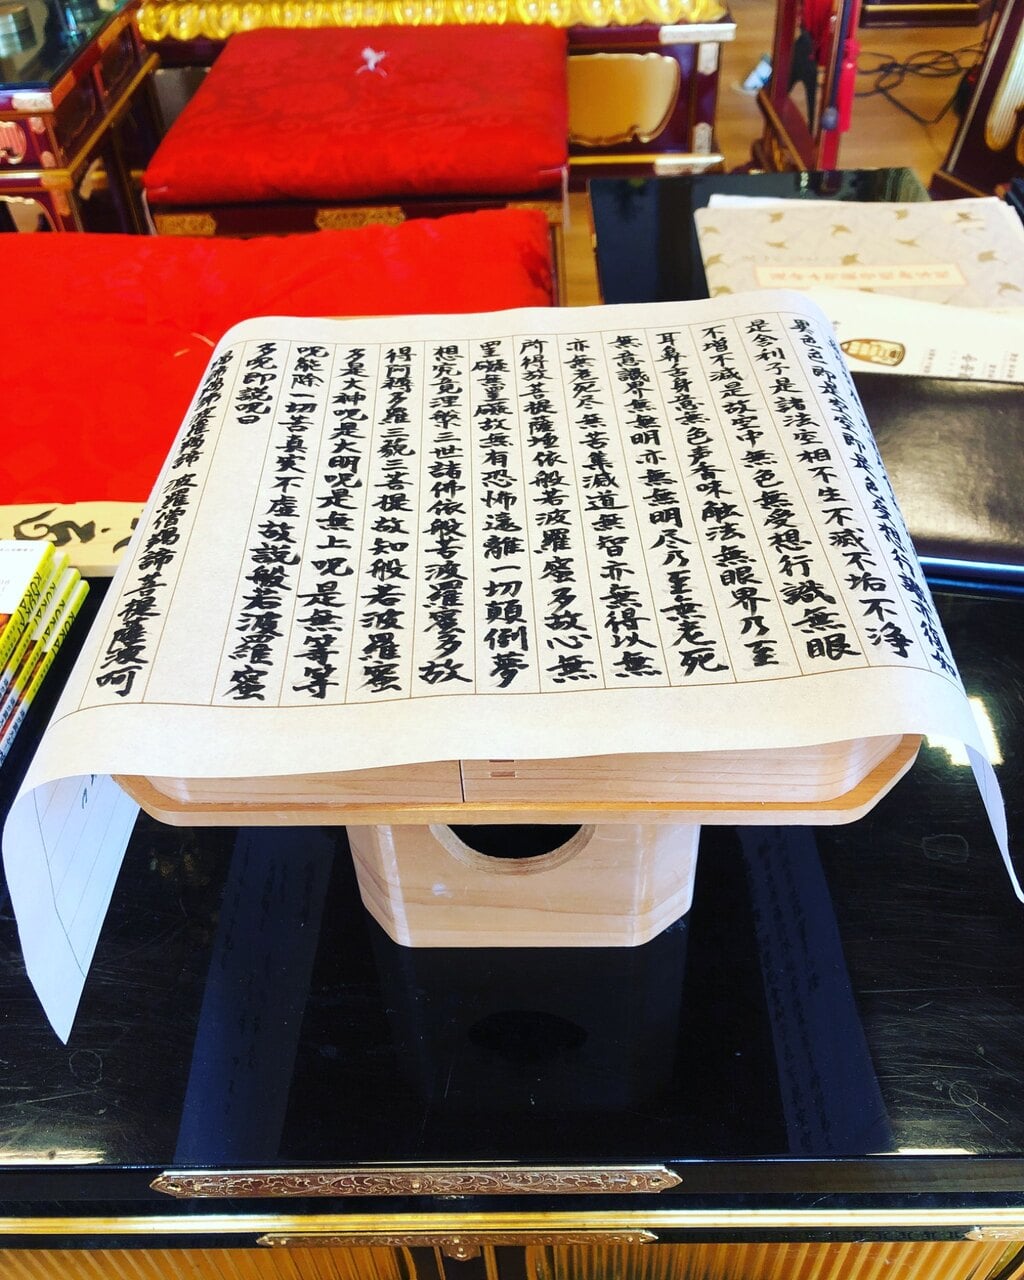 異色色即是空空即是色受想行識亦復如
是舍利子是諸法空相不生不滅不垢不淨
不増不減是故空中無色無受想行識無眼
耳鼻舌身意無色声香味触法無眼界乃至
無意識界無無明亦無無明尽乃至無老死
亦無老死尽無苦集滅道無智亦無得以無
所得故菩提薩埵依般若波羅蜜多故心無
罣礙無罣礙故無有恐怖遠離一切顛倒夢
想究竟涅槃三世諸佛依般若波羅蜜多故
得阿耨多羅三藐三菩提故知般若波羅蜜
多是大神呪是大明呪是無上呪是無等等
呪能除一切苦真実不虚故説般若波羅蜜
多呪即説呪曰
羯諦羯諦波羅羯諦 波羅僧羯諦菩提薩婆訶